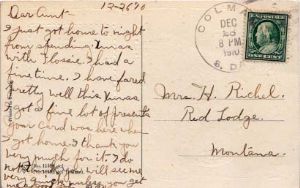 12-26-10
Dear Aunt:-
I just got home to night
from spending Xmas
with Flossie. I had a
fine time. I have fared
pretty well this Xmas
got a fine lot of presents
Your card was here when
I got home. thank you
very much for it. I do
not
will see me
very
you get
DEC
8 PM
1910
S. D.
Mrs. H. Richel.
Red Lodge.
Montana.